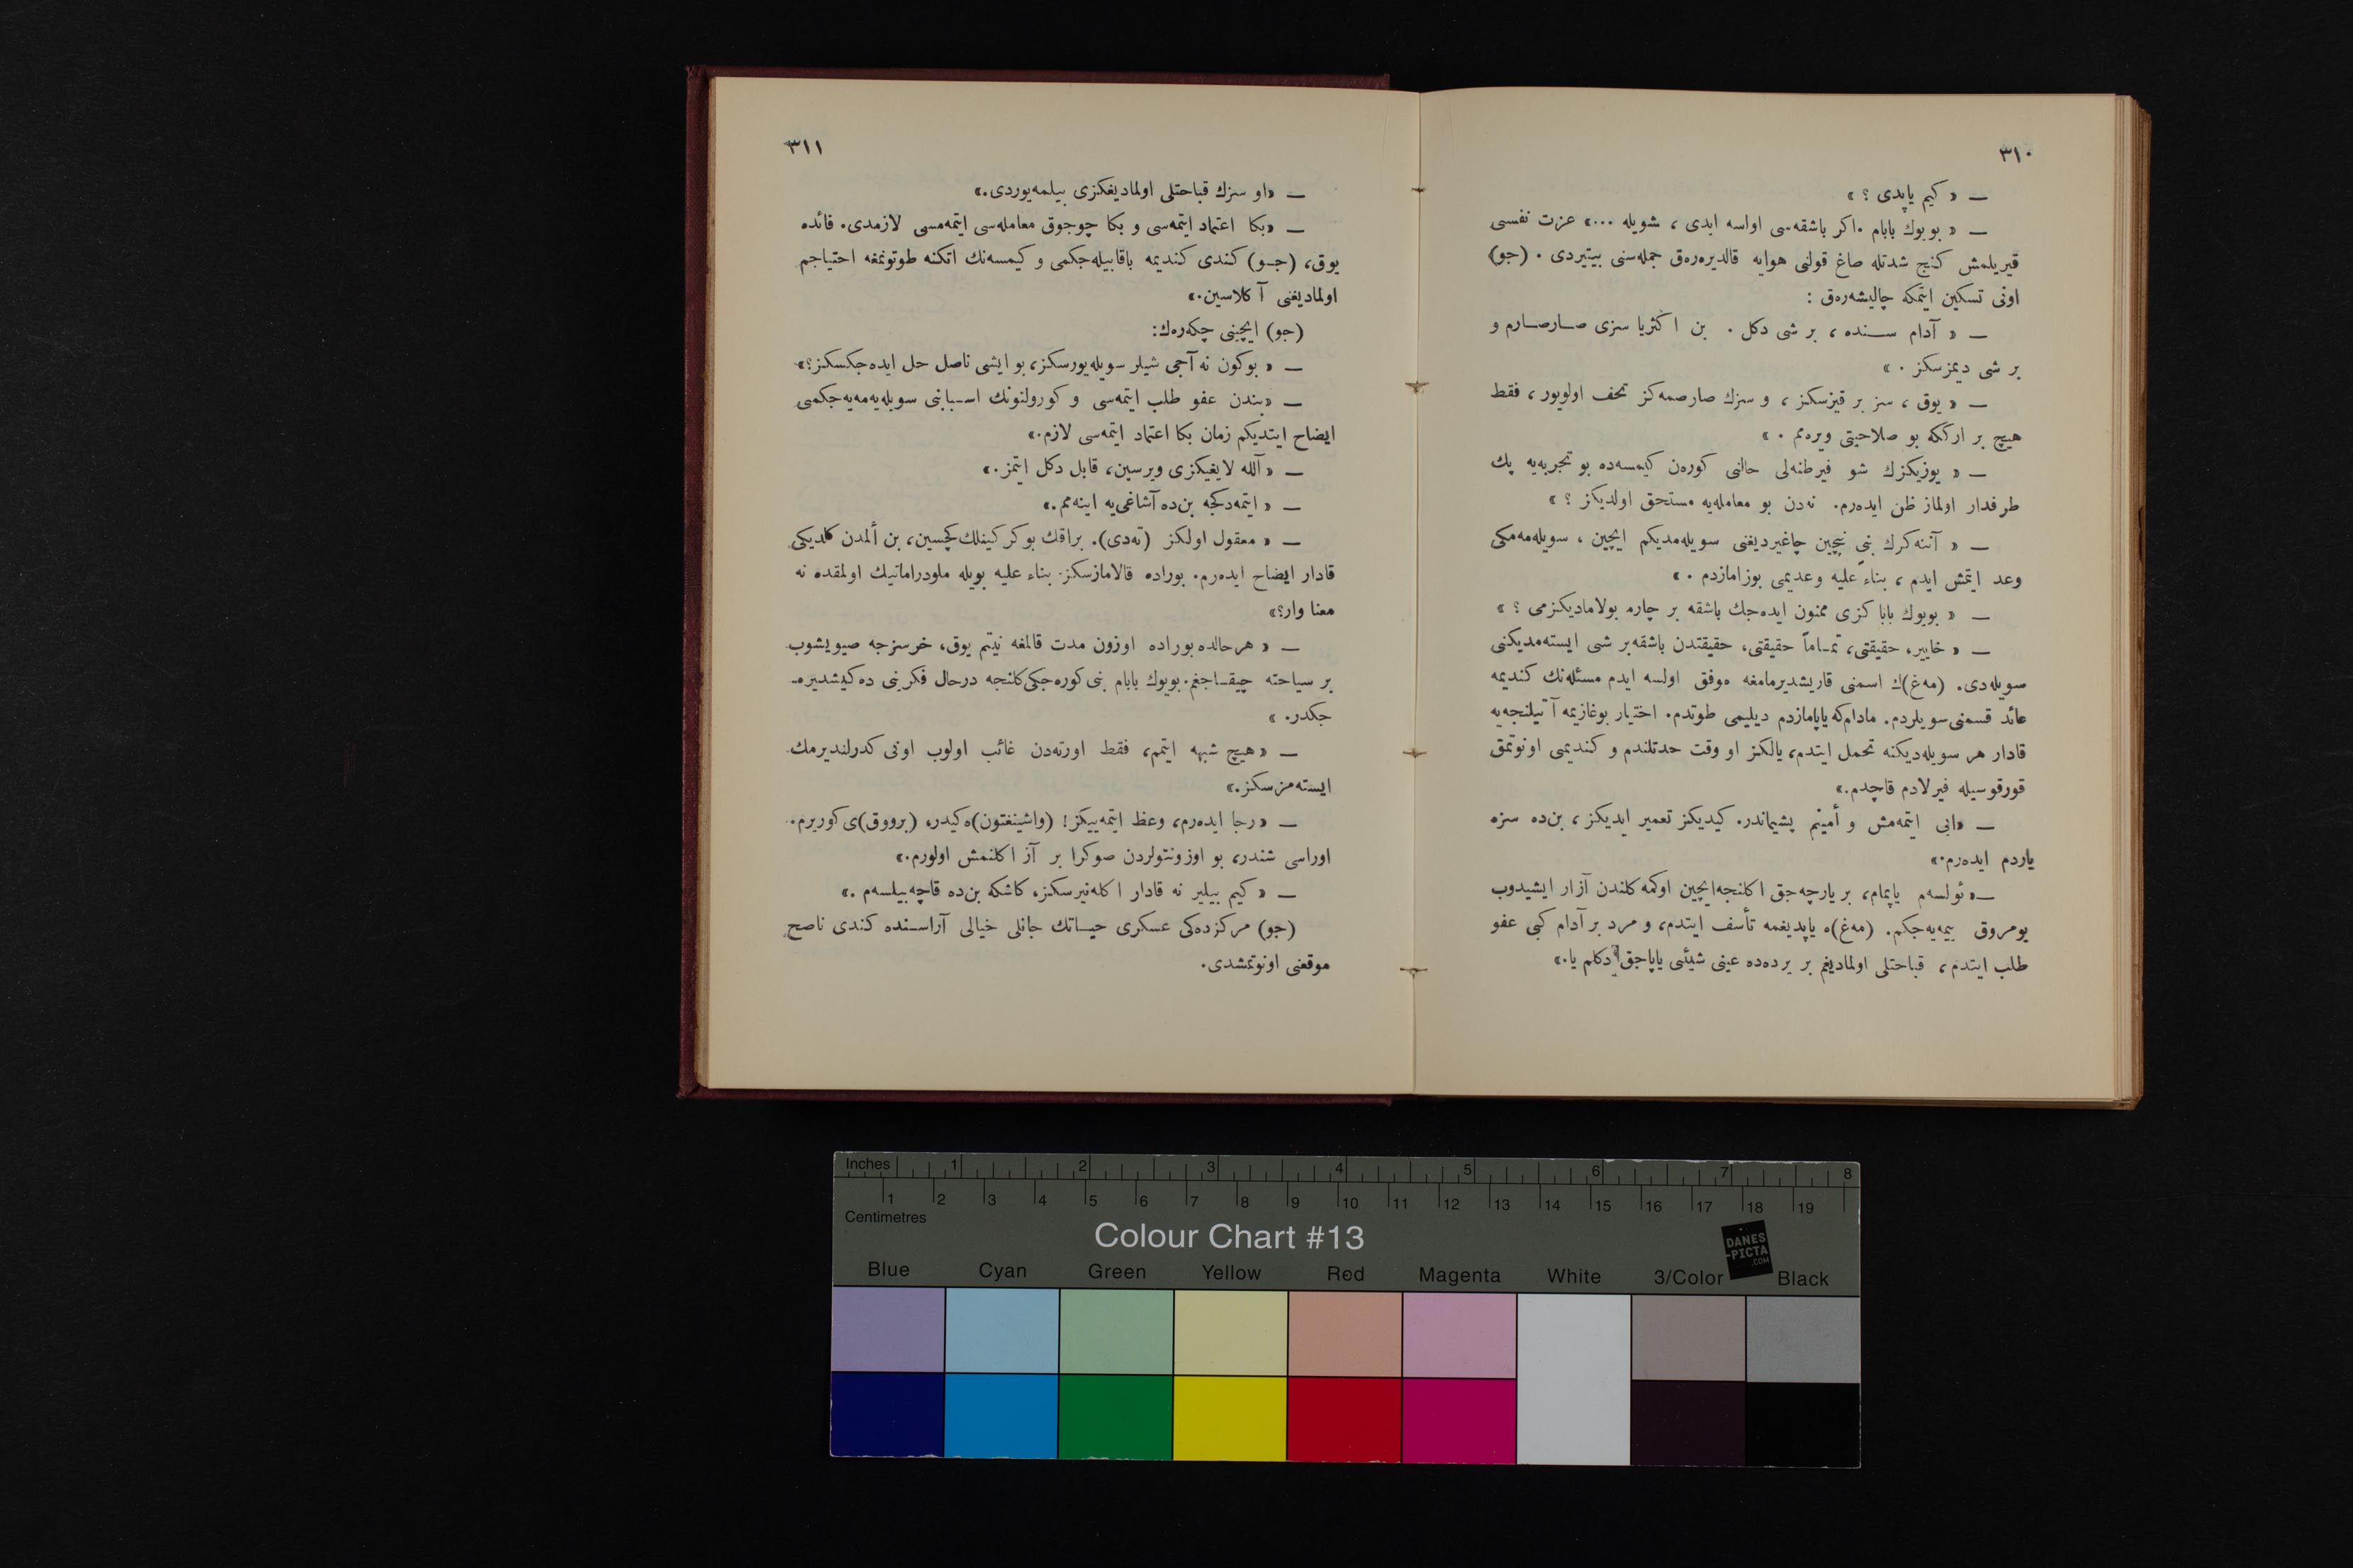 ٣١٠
— « كيم ياپدى ؟ »
— « بويوك بابام . اكر باشقه‌سى اولسه ايدى ، شويله ...» عزت نفسى
قيريلمش كنج شدتله صاغ قولنى هوايه قالديره‌رق جمله‌سنى بيتيردى . (جو)
اونى تسكين ايتمكه چاليشه‌رق :
— « آدام سنده ، بر شى دكل . بن اكثريا سزى صارصارم و
بر شى ديمزسكز . »
— « يوق ، سز بر قيزسكز ، و سزك صارصمه‌كز تحف اولويور ، فقط
هيچ بر اركككه بو صلاحيتى ويره‌مم . »
— « يوزيكزك شو فيرطنه‌لى حالنى كوره‌ن كيمسه‌ده بو تجربه‌يه پك
طرفدار اولماز ظن ايده‌رم. نه‌دن بو معامله‌يه مستحق اولديكز ؟ »
— « آننه‌كزك بنى نيچين چاغيرديغنى سويله‌مديكم ايچين ، سويله‌مه‌مكى
وعد ايتمش ايدم ، بناءً عليه وعديمى بوزامازدم . »
— « بويوك باباكزى ممنون ايده‌جك باشقه بر چاره بولاماديكزمى ؟ »
— « خايير، حقيقتى، تماماً حقيقتى، حقيقتدن باشقه بر شى ايسته‌مديكنى
سويله‌دى. (مه‌غ)ك اسمنى قاريشديرمامغه موفق اولسه ايدم مسئله‌نك كنديمه
عائد قسمنى سويلردم. مادام كه ياپامازدم ديليمى طوتدم. اختيار بوغازيمه آتيلنجه‌يه
قادار هر سويله‌ديكنه تحمل ايتدم، يالكز او وقت حدتلندم و كنديمى اونوتمق
قورقوسيله فيرلادم قاچدم.»
— «ايى ايتمه‌مش و أمينم پشيماندر. كيديكز تعمير ايديكز ، بن‌ده سزه
ياردم ايده‌رم.»
— « ئولسه‌م ياپمام، بر پارچه‌جق اكلنجه ايچين اوكمه كلندن آزار ايشيدوب
يومروق ييمه‌يه‌جكم. (مه‌غ)ه ياپديغمه تأسف ايتدم، و مرد بر آدام كبى عفو
طلب ايتدم ، قباحتلى اولماديغم بر يرده‌ده عينى شيئى ياپاجق دكلم يا.»
٣١١
— «او سزك قباحتلى اولماديغكزى بيلمه‌يوردى.»
— «بكا اعتماد ايتمه‌سى و بكا چوجوق معامله‌سى ايتمه‌مسى لازمدى. فائده
يوق، (جو) كندى كنديمه باقابيله‌جكمى و كيمسه‌نك اتكنه طوتونمغه احتياجم
اولماديغنى آكلاسين.»
(جو) ايچينى چكه‌رك:
— « بوكون نه آجى شيلر سويله‌يورسكز، بو ايشى ناصل حل ايده‌جكسكز؟»
— «بندن عفو طلب ايتمه‌سى و كورولتونك اسبابنى سويله‌يه‌مه‌يه‌جكمى
ايضاح ايتديكم زمان بكا اعتماد ايتمه‌سى لازم.»
— «آلله لايغيكزى ويرسين، قابل دكل ايتمز.»
— « ايتمه‌دكجه بن‌ده آشاغى‌يه اينه‌مم.»
— « معقول اولكز (ته‌دى). براقك بو كركينلك كچسين، بن ألمدن كلديكى
قادار ايضاح ايده‌رم. بوراده قالامازسكز. بناء عليه بويله ملودراماتيك اولمقده نه
معنا وار؟»
— « هر حالده بوراده اوزون مدت قالمغه نيتم يوق، خرسزجه صيويشوب
بر سياحته چيقاجغم. بويوك بابام بنى كوره‌جكى كلنجه درحال فكرينى ده‌كيشديره‌-
جكدر. »
— «هيچ شبهه ايتمم، فقط اورته‌دن غائب اولوب اونى كدرلنديرمك
ايسته‌مزسكز.»
— «رجا ايده‌رم، وعظ ايتمه‌ييكز! (واشينغتون)ه كيدر، (برووق)ى كوريرم.
اوراسى شندر، بو اوزونتولردن صوكرا بر آز اكلنمش اولورم.»
— « كيم بيلير نه قادار اكله‌نيرسكز، كاشكه بن‌ده قاچه‌بيلسه‌م .»
(جو) مركزده‌كى عسكرى حياتك جانلى خيالى آراسنده كندى ناصح
موقعنى اونوتمشدى.
Inches 1 2 3 4 5 6 7 8
1 2 3 4 5 6 7 8 9 10 11 12 13 14 15 16 17 18 19
Centimetres
Colour Chart #13
DANES
-PICTA
.COM
Blue Cyan Green Yellow Red Magenta White 3/Color Black